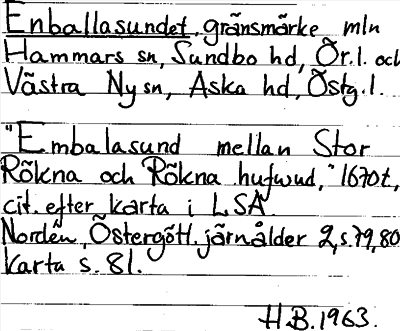 Enballasundet, gränsmärke mln
Hammars sn, Sundbo hd, Ör.l. och
Västra Ny sn, Aska hd, Östg.l.
"Embalasund mellan Stor
Rökna och Rökna hufwud," 1670t,
cit. efter karta i LSA.
Nordén, Östergötl. järnålder 2, s. 79, 80
karta s. 81.
H.B. 1963.